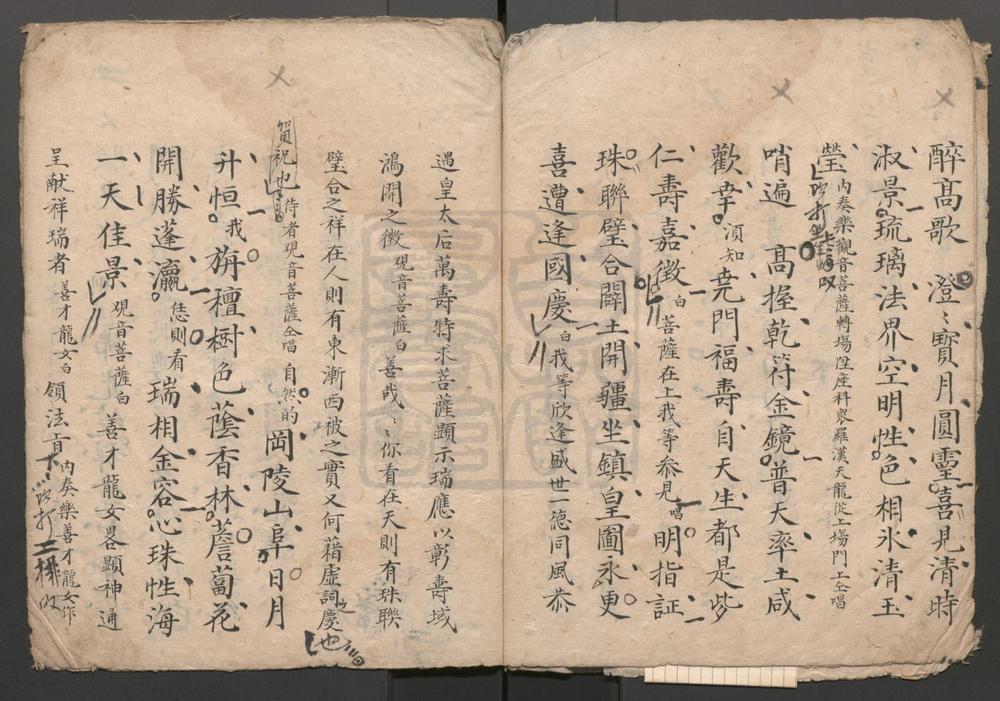 醉高歌　澄〻寶月圓靈喜見清時
淑景琉璃法界空明性色相氷清玉
瑩內奏樂觀音菩薩轉場陞座科衆羅漢天龍從上場門上仝唱
吹打
哨遍　高握乾符金鏡普天率土咸
歡幸須知尭門福壽自天生都是些
仁壽嘉徵白菩薩在上我等叅見唱明指証
珠聯璧合闢土開疆坐鎮皇圖永更
喜遭逢國慶白我等欣逢盛世一德同風恭
遇皇太后萬壽特求菩薩顯示瑞應以彰壽域
鴻開之徵觀音菩薩白善哉〻你看在天則有珠聯
璧合之祥在人則有東漸西被之實又何藉虛詞慶也
賀祝也侍者觀音菩薩仝唱自然的岡陵山阜日月
升恒我旃檀樹色蔭香林薝蔔花
開勝蓬瀛恁則看瑞相金容心珠性海
一天佳景觀音菩薩白善才龍女畧顯神通
呈献祥瑞者善才龍女白領法旨內奏樂善才龍女作
吹打